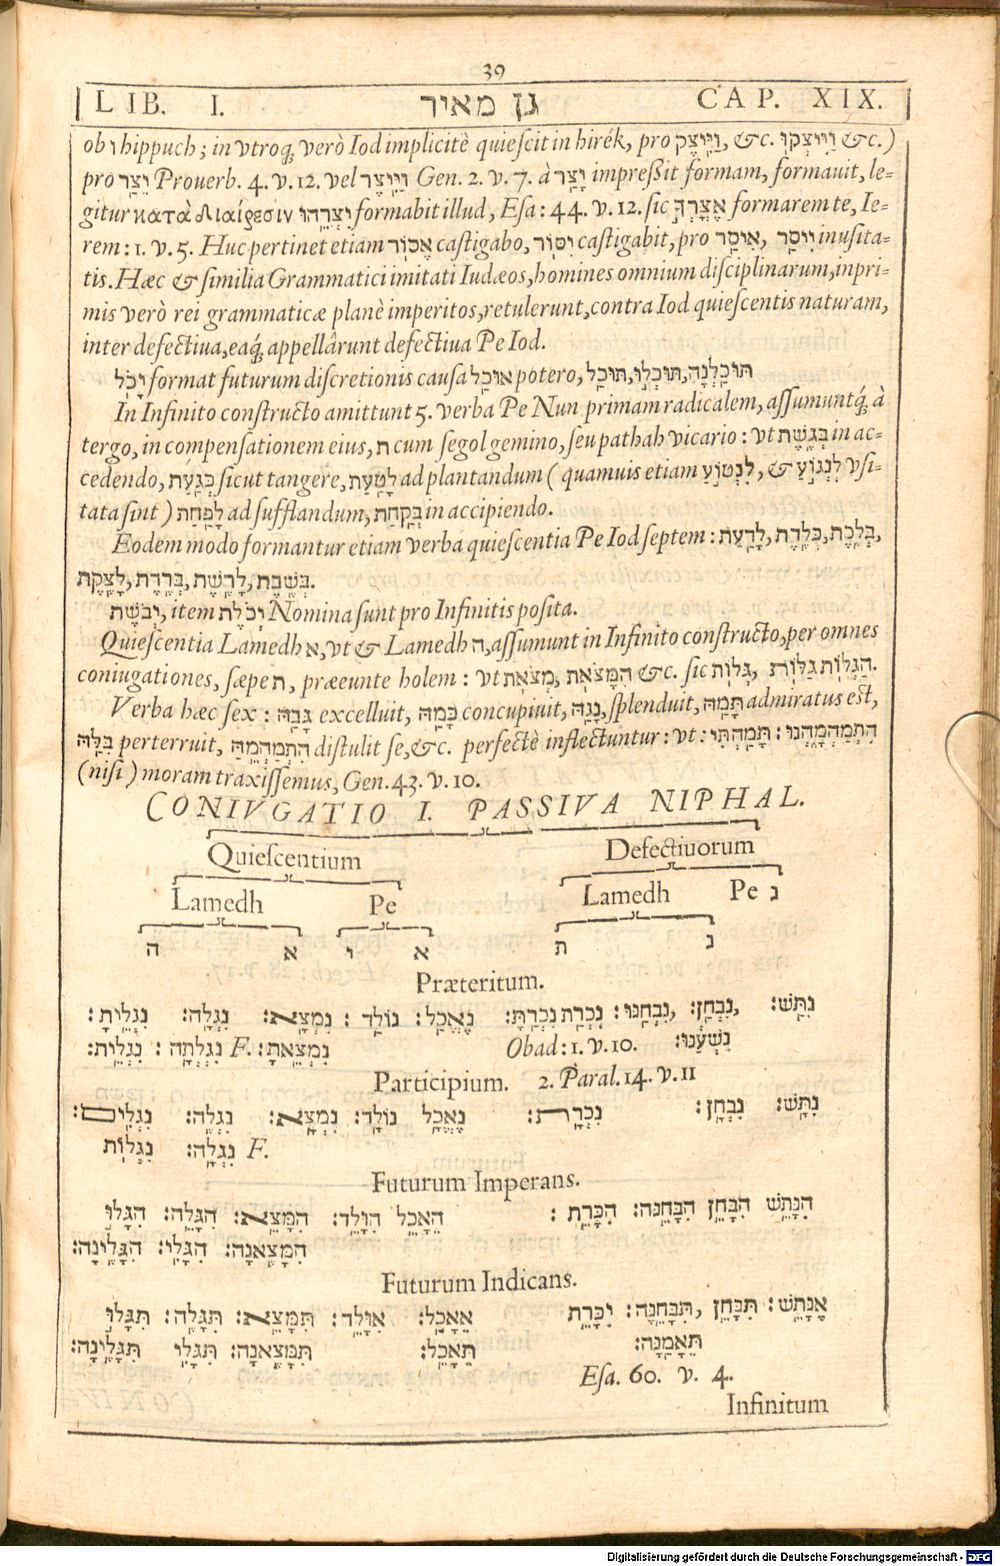 39
LIB. I. גן מאיר CAP. XIX.
ob ו hippuch; in vtroq́ꝫ verò Iod implicitè quieſcit in hirék, pro וַיִּצֶק, &c. וַיִּיצְקוּ &c.)
pro יֵצַר Prouerb. 4. v. 12. vel וַיִּיצֶר Gen. 2. v. 7. à יָצַר impreſsit formam, formauit, le=
gitur κατὰ διαίρεσιν יִצְּרֵהוּ formabit illud, Eſa: 44. v. 12. ſic אֶצָּרְךָ formarem te, Ie=
rem: 1. v. 5. Huc pertinet etiam אֶסּוֹר caſtigabo, יִסּוֹר caſtigabit, pro אִיסַר, יִיסַר inuſita=
tis. Hæc & ſimilia Grammatici imitati Iudæos, homines omnium diſciplinarum, inpri=
mis verò rei grammaticæ planè imperitos, retulerunt, contra Iod quieſcentis naturam,
inter defectiua, eaq́ꝫ appellârunt defectiua Pe Iod.
יָכֹל format futurum diſcretionis cauſa אוּכַל potero, תּוּכַלְנָה, תּוּכְלוּ, תּוּכַל
In Infinito conſtructo amittunt 5. verba Pe Nun primam radicalem, aſſumuntq́ꝫ à
tergo, in compenſationem eius, ת cum ſegol gemino, ſeu pathah vicario: vt בְּגֶשֶׁת in ac=
cedendo, כְּגַעַת ſicut tangere, לָטַעַת ad plantandum (quamuis etiam לִנְטוֹעַ, & לִנְגּוֹעַ vſi=
tata ſint) לָפַחַת ad ſufflandum, בְּקַחַת in accipiendo.
Eodem modo formantur etiam verba quieſcentia Pe Iod ſeptem: בְּלֶכֶת, כְּלֶדֶת, לָדַעַת,
בְּשֶׁבֶת, לָרֶשֶׁת, בְּרֶדֶת, לָצֶקֶת.
יְבֹשֶׁת, item יְכֹלֶת Nomina ſunt pro Infinitis poſita.
Quieſcentia Lamedh א, vt & Lamedh ה, aſſumunt in Infinito conſtructo, per omnes
coniugationes, ſæpe ת, præeunte holem: vt מְצֹאת, הִמָּצֹאת &c. ſic גְּלוֹת, הַגְלוֹת גַּלּוֹת.
Verba hæc ſex: גָּבַהּ excelluit, כָּמַהּ concupiuit, נָגַהּ, ſplenduit, תָּמַהּ admiratus eſt,
בִּלַּהּ perterruit, הִתְמַהְמַהּ diſtulit ſe, &c. perfectè inflectuntur: vt: תָּמַהְתִּי: הִתְמַהְמָהְנוּ
(niſi) moram traxiſſemus, Gen. 43. v. 10.
CONIVGATIO I. PASSIVA NIPHAL.
Quieſcentium Defectiuorum
Lamedh Pe Lamedh Pe נ
ה א י א ת נ
Præteritum.
נִתַּשׁ: נִבְחַן, נִבְחַנּוּ: נִכְרַת נִכְרַתָּ: נֶאֱכַל: נוֹלַד: נִמְצָא: נִגְלָה: נִגְלֵיתָ:
נִשְׁעַנּוּ: Obad: 1. v. 10. נִמְצֵאתָ: F. נִגְלְתָה: נִגְלֵית:
Participium. 2. Paral. 14. v. 11
נִתָּשׁ: נִבְחָן: נִכְרָת: נֶאֱכָל נוֹלָד: נִמְצָא: נִגְלֶה: נִגְלִים:
F. נִגְלָה: נִגְלוֹת
Futurum Imperans.
הִנָּתֵשׁ הִבָּחֵן הִבָּחֵנָּה: הִכָּרֵת: הֵאָכֵל הִוָּלֵד: הִמָּצֵא: הִגָּלֵה: הִגָּלוּ
הִמָּצֶאנָה: הִגָּלִי: הִגָּלֶינָה:
Futurum Indicans.
אֶנָּתֵשׁ: תִּבָּחֵן, תִּבָּחֵנָּה: יִכָּרֵת אֵאָכֵל: אִוָּלֵד: תִּמָּצֵא: תִּגָּלֶה: תִּגָּלוּ
תֵּאָמַנָּה: תֵּאָכֵל: תִּמָּצֶאנָה: תִּגָּלִי תִּגָּלֶינָה:
Eſa. 60. v. 4.
Infinitum
Digitalisierung gefördert durch die Deutsche Forschungsgemeinschaft - DFG